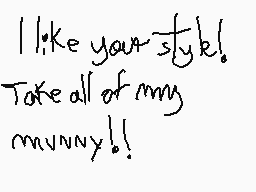 I like your style!
Take all of my
munny!!